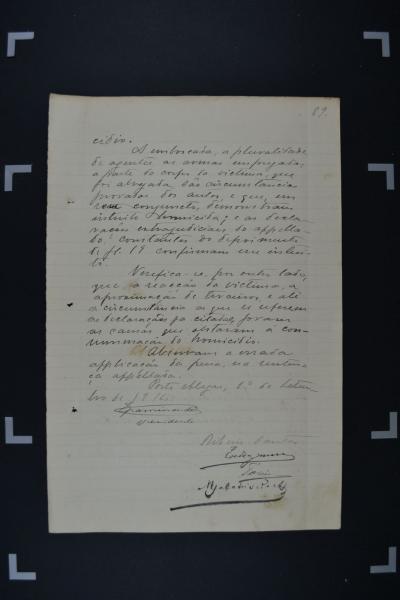 89.
cidio.
A emboscada, a pluralidade
de agentes as armas empregadas,
a parte do corpo da victima, que
foi alvejada, são circumstancias
provadas dos autos e que, em
conjuncto, demonstram
intuito homicida; e as decla-
rações extrajudiciaes do appella-
do constantes do depoimento
de fl. 19 confirmam esse intui-
to.
Verifica-se, por outro lado,
que a reacção da victima, a
aproximação de terceiros, e até
a circumstancia a que se referem
as declarações já citadas, foram
as causas que obstaram á con-
summação do homicidio.
Observam a errada
applicação da pena, na senten-
ça appellada.
Porto Alegre, 1º de Setem-
bro de
Presidente